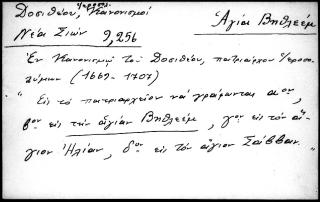 Δοσιθέου, Ἱεροσολ. Κανονισμοί
Ἁγία Βηθλεέμ
Νέα Σιών 9,256
Ἐν Κανονισμῷ τοῦ Δοσιθέου, πατριάρχου Ἱεροσο-
λύμων (1669-1707)
"Εἰς τὸ πατριαρχεῖον νὰ γράφωνται αον,
βον εἰς τὴν ἁγίαν Βηθλεέμ, γον εἰς τὸν ἅ-
γιον Ἠλίαν, δον εἰς τὸν ἅγιον Σάββαν."